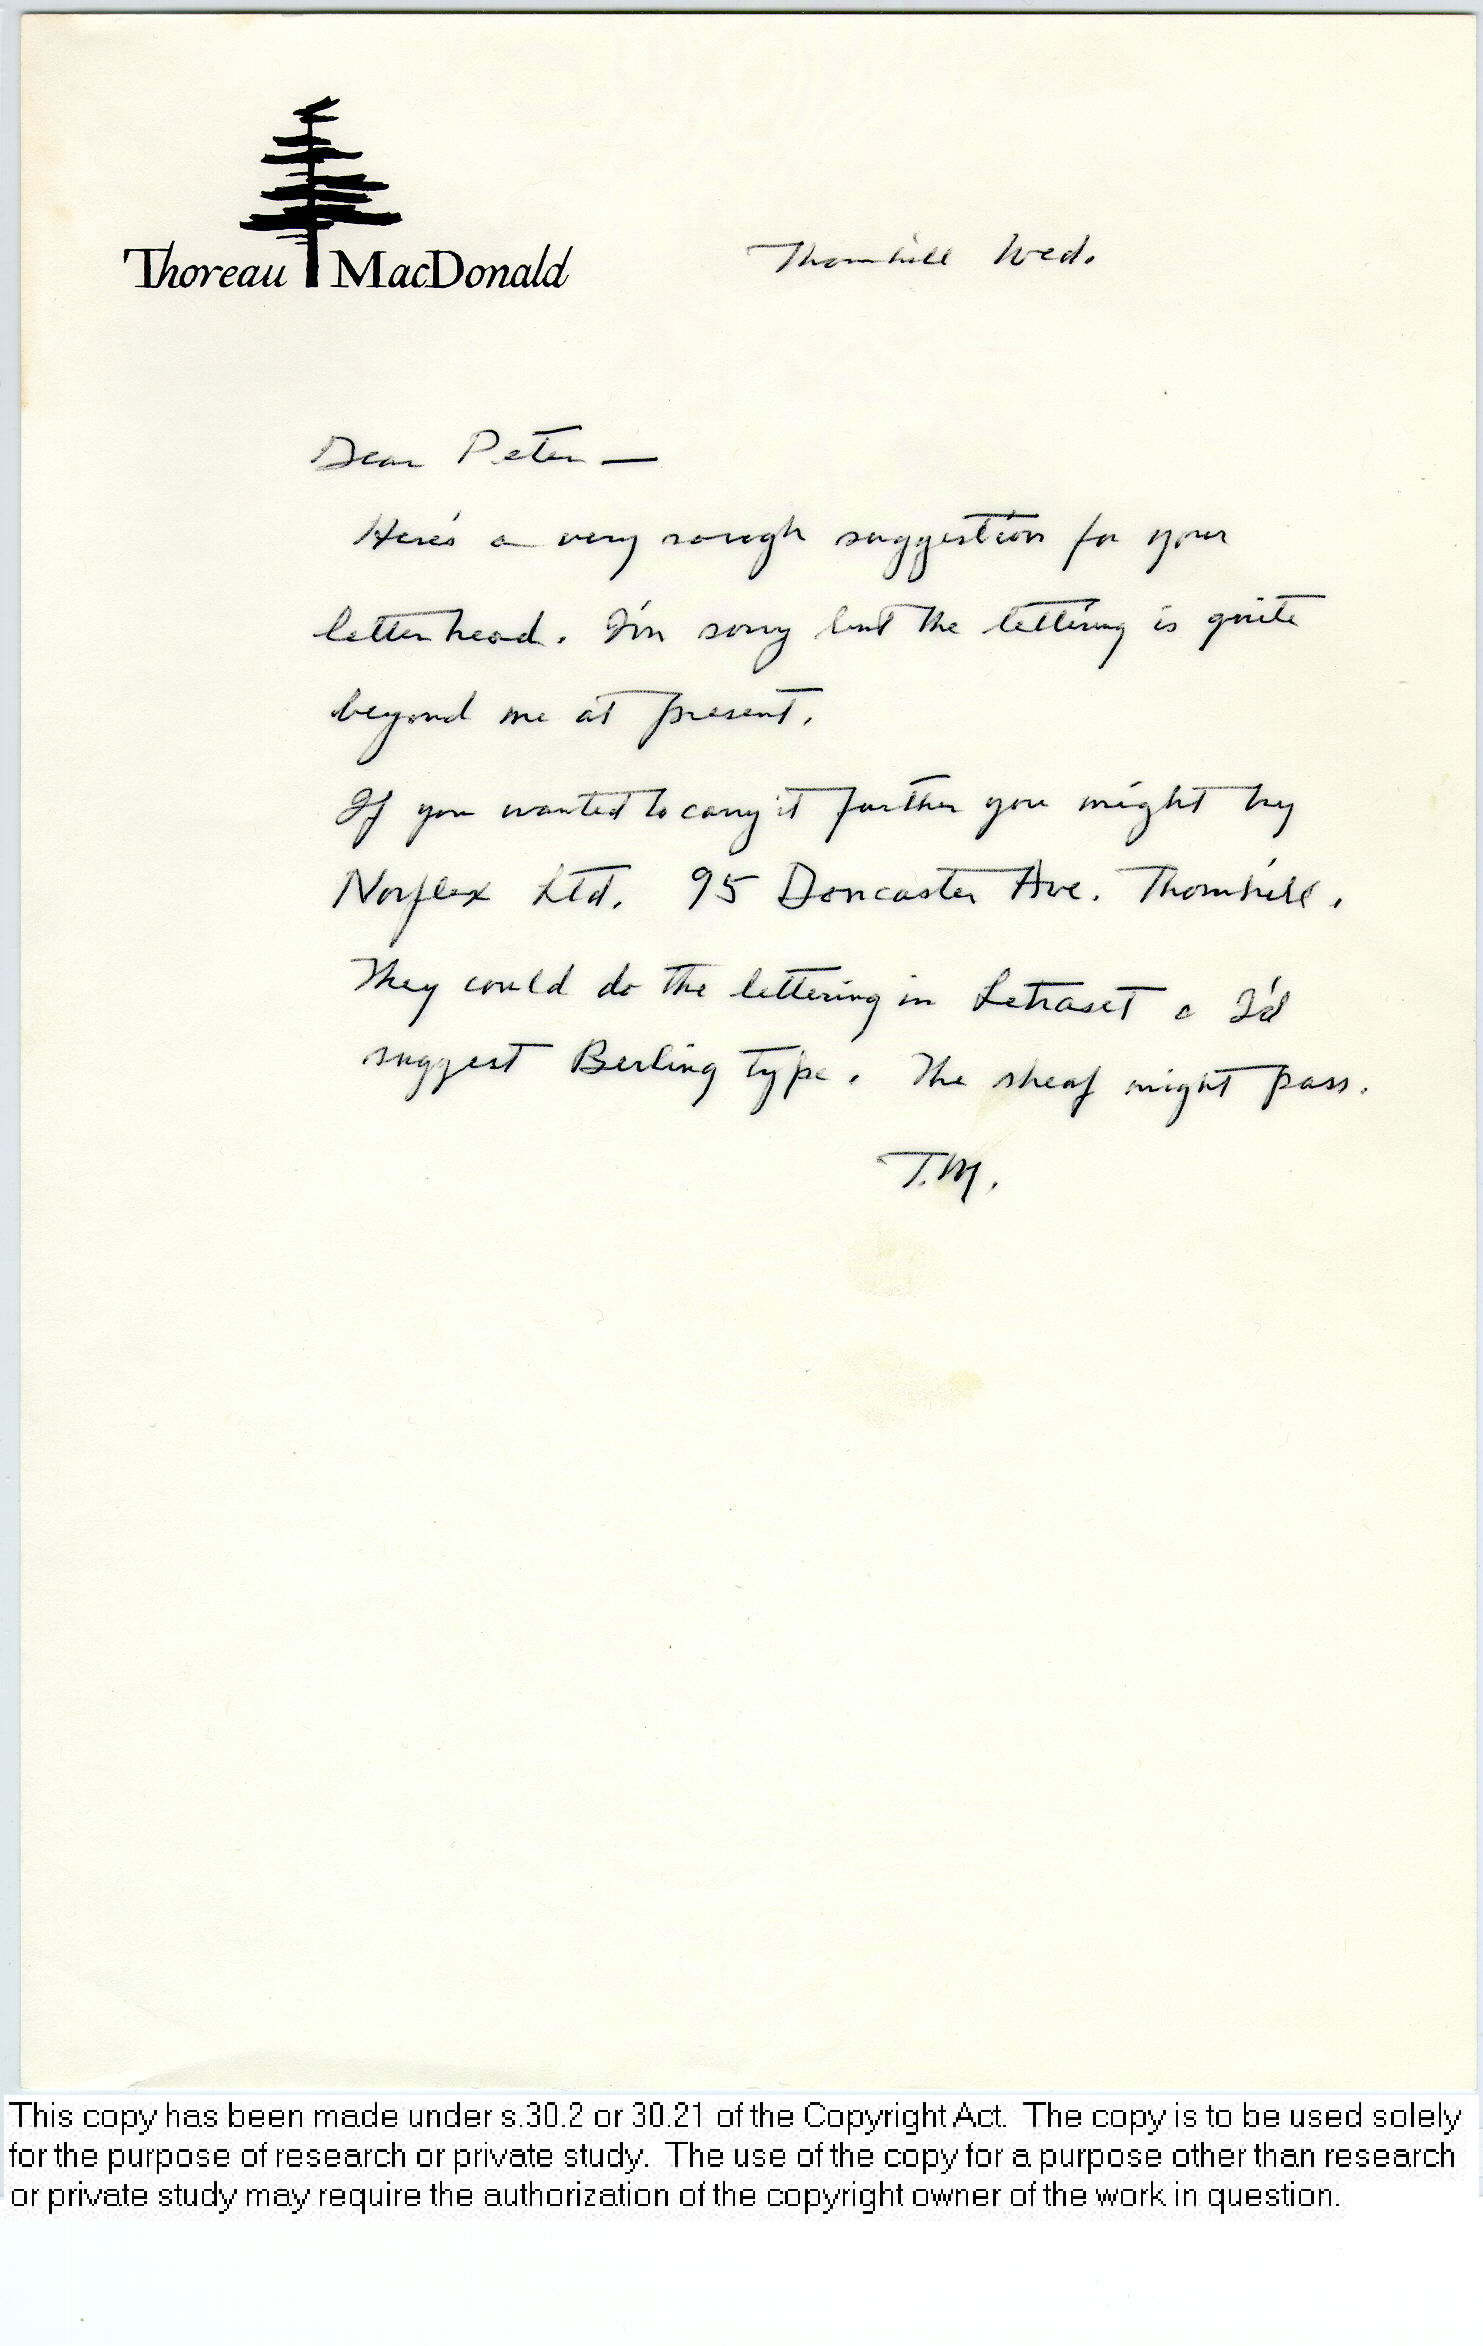 Thoreau MacDonald
Thornhill Wed.
Dear Peter —
Here's a very rough suggestion for your
letterhead. I'm sorry but the lettering is quite
beyond me at present.
If you wanted to carry it further you might try
Norflex Ltd. 95 Doncaster Ave. Thornhill.
They could do the lettering in Letraset & I'd
suggest Berling type. The sheaf might pass.
T.M.
This copy has been made under s.30.2 or 30.21 of the Copyright Act. The copy is to be used solely
for the purpose of research or private study. The use of the copy for a purpose other than research
or private study may require the authorization of the copyright owner of the work in question.